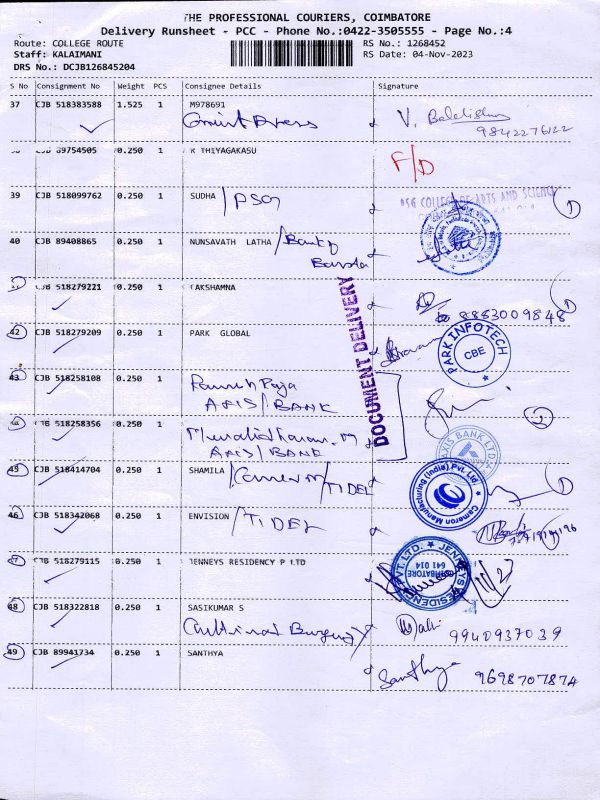 THE PROFESSIONAL COURIERS, COIMBATORE
Delivery Runsheet - PCC - Phone No.:0422-3505555 - Page No.:4
Route: COLLEGE ROUTE RS No.: 1268452
Staff: KALAIMANI RS Date: 04-Nov-2023
DRS No.: DCJB126845204
S No Consignment No Weight PCS Consignee Details Signature
37 CJB 518383588 1.525 1 M978691
V.
9842276122
89754505 0.250 1 K THIYAGAKASU F/D
39 CJB 518099762 0.250 1 SUDHA /PSG
PSG COLLEGE OF ARTS AND SCIENCE
1
40 CJB 89408865 0.250 1 NUNSAVATH LATHA /Bank of
Baroda
518279221 0.250 1 LAKSHAMNA
8883009848
1
42 CJB 518279209 0.250 1 PARK GLOBAL
PARK INFOTECH
CBE
DOCUMENT DELIVERY
43 CJB 518258108 0.250 1
AXIS/BANK
2
CJB 518258356 0.250 1
AXIS/BANK
AXIS BANK LTD
45 CJB 518414704 0.250 1 SHAMILA /Cameron/TIDEL
Cameron Manufacturing (India) Pvt. Ltd
1
46 CJB 518342068 0.250 1 ENVISION /TIDEL
CJB 518279115 0.250 1 JENNEYS RESIDENCY P LTD
JENNEYS RESIDENCY PVT. LTD.
COIMBATORE
641 014
48 CJB 518322818 0.250 1 SASIKUMAR S
9940937039
49 CJB 89941734 0.250 1 SANTHYA
Santhya
9698707874